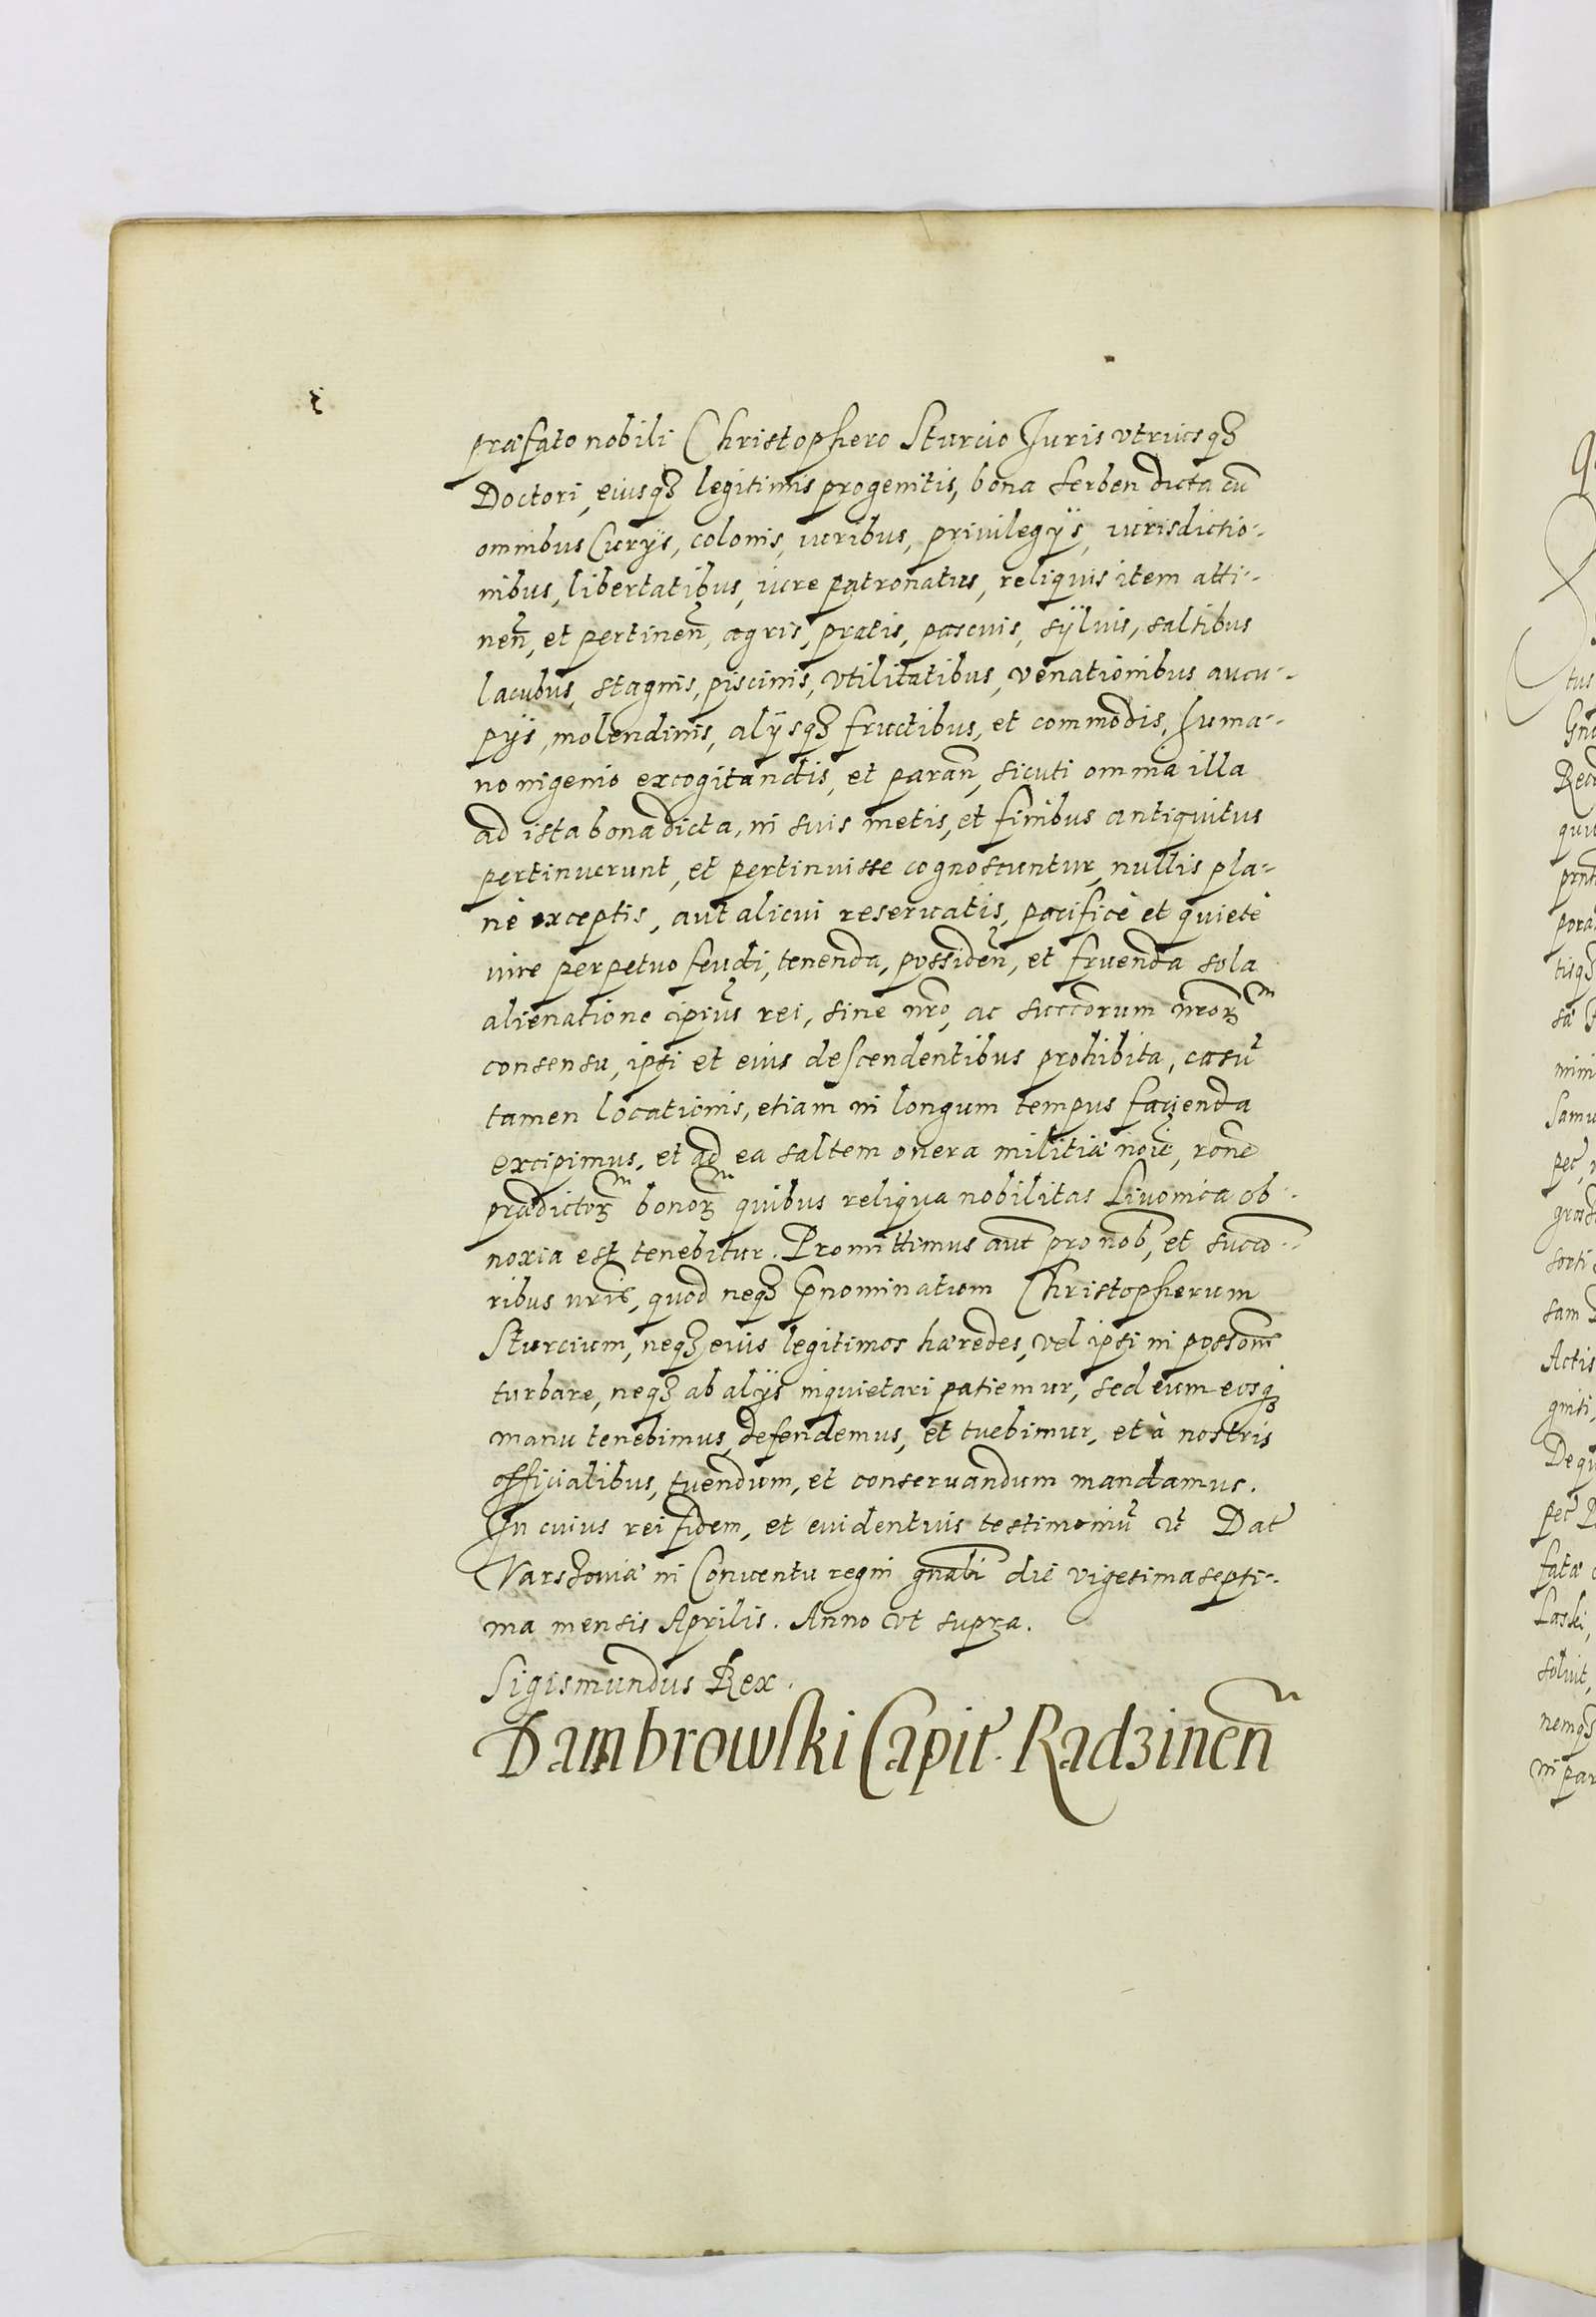 præfato nobili Christophero Sturcio Juris vtriusqꝫ
Doctori, eiusqꝫ legitimis progenitis, bona Serben dicta cū
omnibus Curijs, colonis, iuribus, priuilegijs, iurisdictio-
nibus, libertatibus, iure patronatus, reliquis item atti-
neñ, et pertineñ, agris, pratis, pascuis, sÿluis, saltibus
lacubus, stagnis, piscinis, vtilitatibus, venationibus aucu-
pijs, molendinis, alijsqꝫ fructibus, et commodis, huma-
no ingenio excogitandis, et parañ, sicuti omnia illa
ad ista bona dicta, in suis metis, et finibus antiquitus
pertinuerunt, et pertinuisse cognoscuntur, nullis pla-
nè exceptis, aut alicui reseruatis, pacificè et quietè
iure perpetuo feudi, tenenda, possideñ, et fruenda sola
alienatione ipius rei, sine nro, ac succorum nroꝝ
consensu, ipsi et eius descendentibus prohibita, casū
tamen locationis, etiam in longum tempus facienda
excipimus, et ad ea saltem onera militiæ noie, rone
prædictoꝝ bonoꝝ quibus reliqua nobilitas Liuonica ob-
noxia est tenebitur. Promittimus aut pro nob, et succo-
ribus nris, quod neqꝫ pnominatum Christopherum
Sturcium, neqꝫ eius legitimos hæredes, vel ipsi in possone
turbare, neqꝫ ab alijs inquietari patiemur, sed eum eosqꝫ
manu tenebimus, defendemus, et tuebimur, et à nostris
officialibus, tuendum, et conseruandum mandamus.
In cuius rei fidem, et euidentius testimoniū Dat
Varszouiæ in Conuentu regni gnali die vigesima septi-
ma mensis Aprilis. Anno vt supra.
Sigismundus Rex.
Dambrowski Capit. Radzineñ